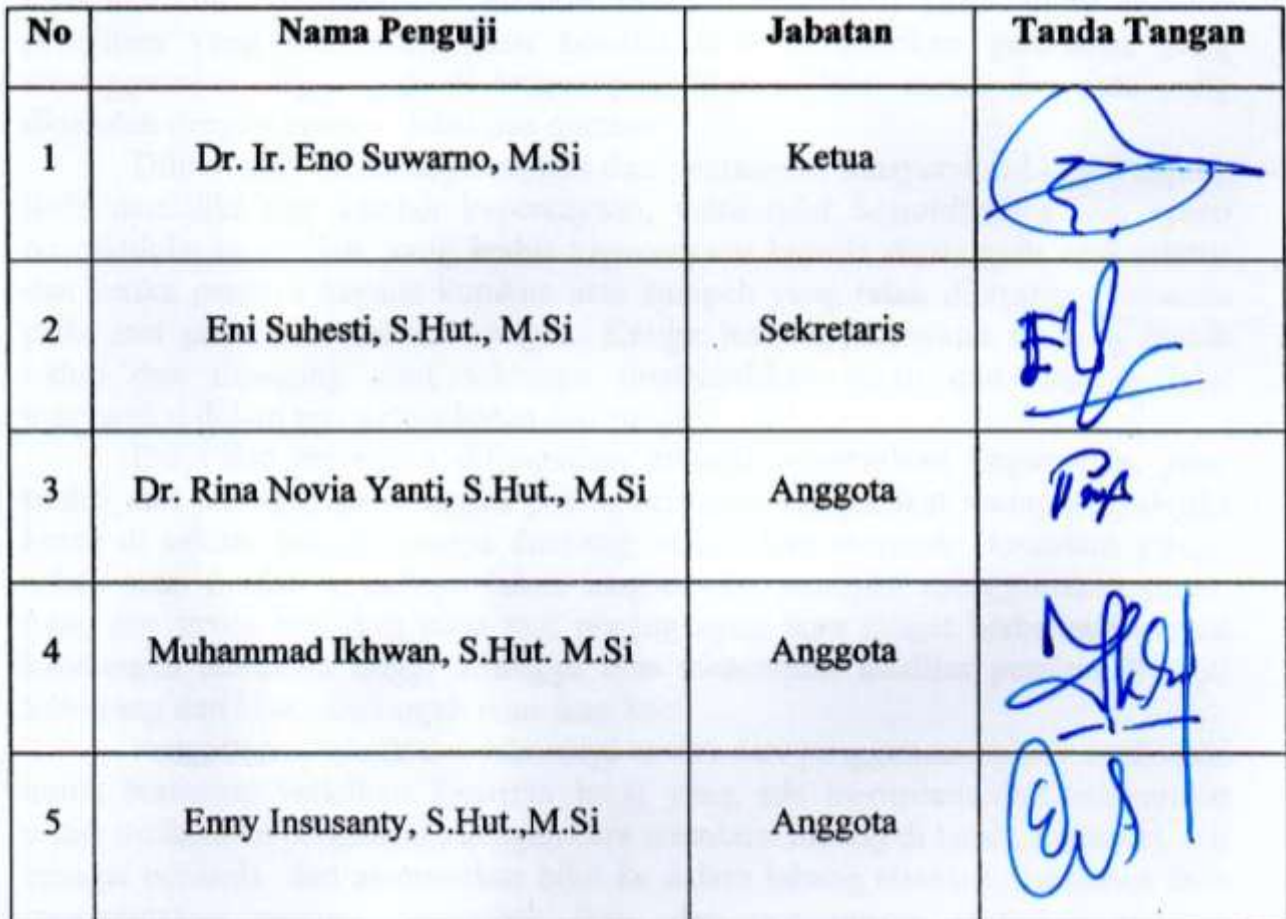 No Nama Penguji Jabatan Tanda Tangan
1 Dr. Ir. Eno Suwarno, M.Si Ketua
2 Eni Suhesti, S.Hut., M.Si Sekretaris
3 Dr. Rina Novia Yanti, S.Hut., M.Si Anggota
4 Muhammad Ikhwan, S.Hut, M.Si Anggota
5 Enny Insusanty, S.Hut.,M.Si Anggota